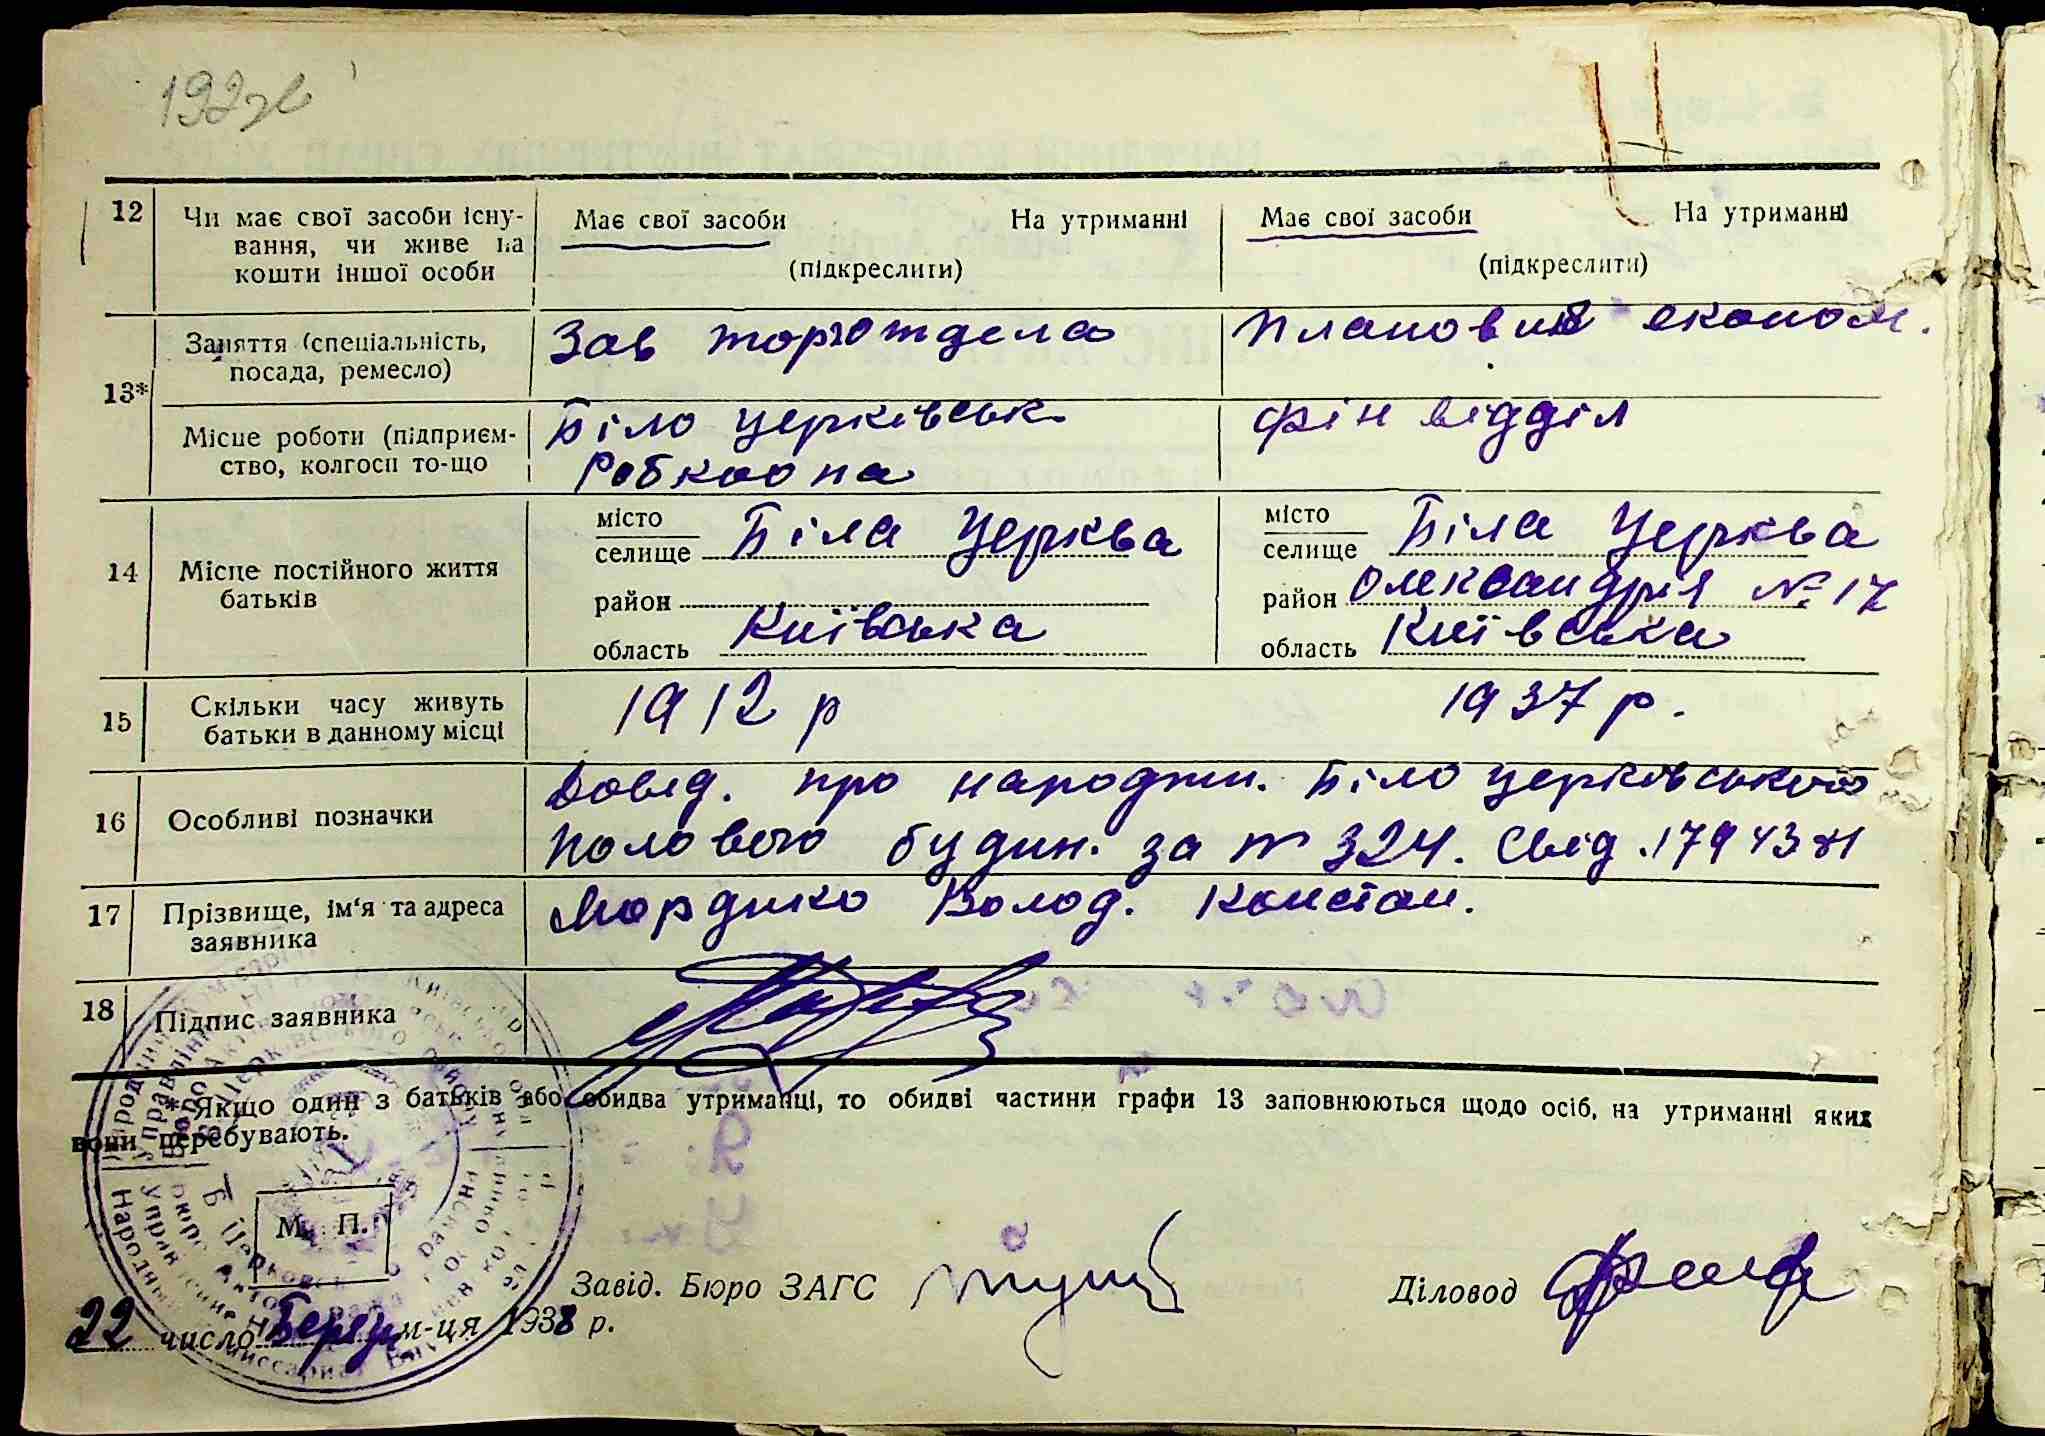 192
12 Чи має свої засоби існу-
вання, чи живе на
кошти іншої особи
Має свої засоби На утриманні
(підкреслити)
Має свої засоби На утриманні
(підкреслити)
13*
Заняття (спеціальність,
посада, ремесло)
Зав торготдела
Плановий економ.
Місце роботи (підприєм-
ство, колгосп то-що
Біло церківськ
Робкоопа
Фін відділ
14 Місце постійного життя
батьків
місто
селище Біла Церква
район
область Київська
місто
селище Біла Церква
район Олександрія № 17
область Київська
15 Скільки часу живуть
батьки в данному місці
1912 р
1937 р.
16 Особливі позначки
Довід. про народжн. Біло церківського
Полового будин. за № 324. Свід.
17 Прізвище, ім'я та адреса
заявника
Мордико Волод. Констан.
18 Підпис заявника
* Якщо один з батьків або обидва утриманці, то обидві частини графи 13 заповнюються щодо осіб, на утриманні яких
вони перебувають.
М. П.
Завід. Бюро ЗАГС
Діловод
22 число Березн м-ця 1938 р.